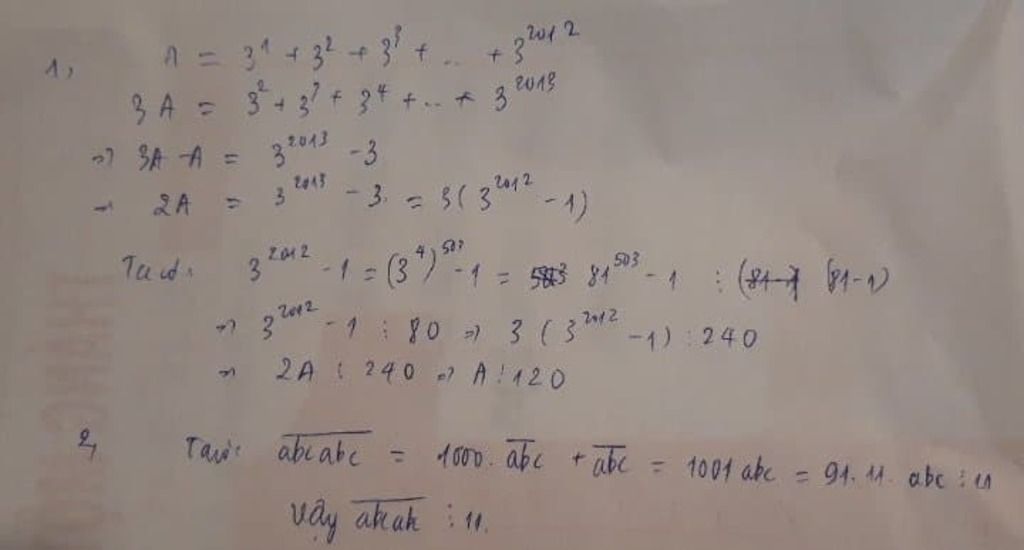 1, A = 3^1 + 3^2 + 3^3 + .. + 3^2012
3A = 3^2 + 3^3 + 3^4 + .. + 3^2013
=> 3A - A = 3^2013 - 3
→ 2A = 3^2013 - 3. = 3(3^2012 - 1)
Ta có: 3^2012 - 1 = (3^4)^503 - 1 = 81^503 - 1 ⋮ (81-1)
=> 3^2012 - 1 ⋮ 80 => 3(3^2012 - 1) ⋮ 240
→ 2A ⋮ 240 => A ⋮ 120
2, Ta có: a̅b̅c̅a̅b̅c̅ = 1000. a̅b̅c̅ + a̅b̅c̅ = 1001 abc = 91. 11. abc ⋮ 11
Vậy a̅b̅c̅a̅b̅c̅ ⋮ 11.